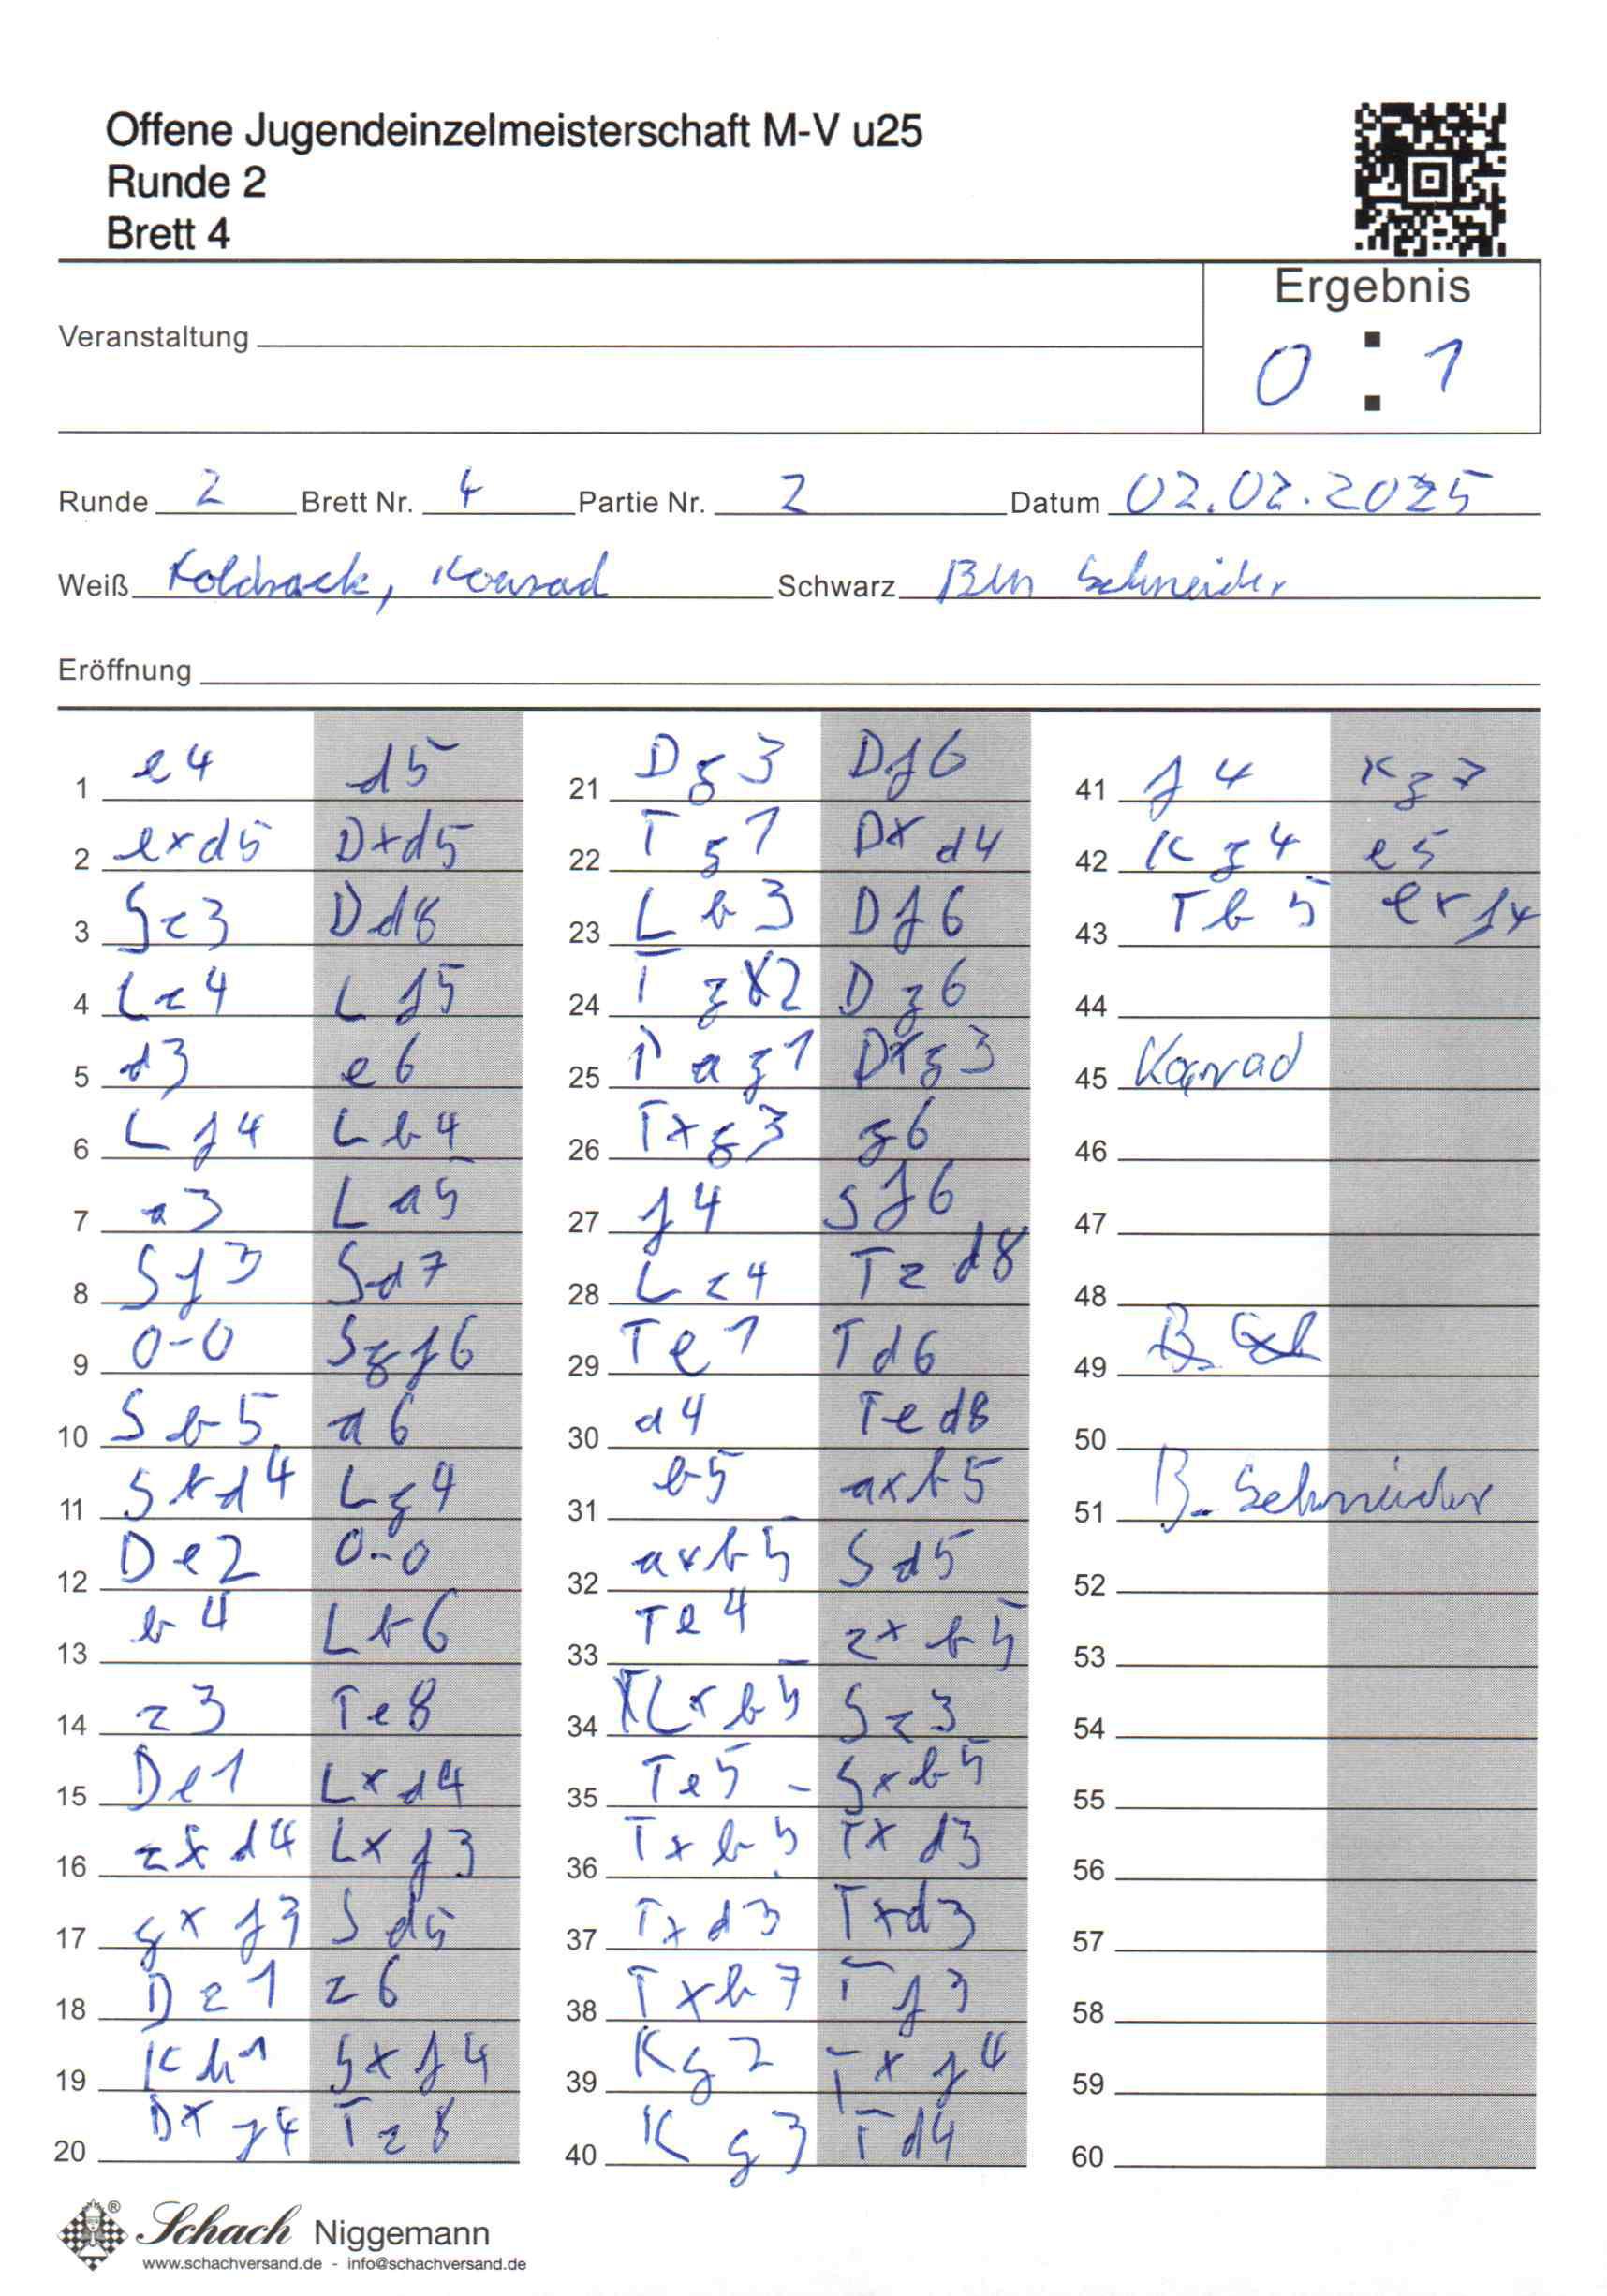 Offene Jugendeinzelmeisterschaft M-V u25
Runde 2
Brett 4
Ergebnis
Veranstaltung
0 : 1
Runde 2 Brett Nr. 4 Partie Nr. 2 Datum 02.02.2025
Weiß Koldrack, Konrad Schwarz Ben Schneider
Eröffnung
1 e4 d5
2 exd5 Dxd5
3 Sc3 Dd8
4 Lc4 Lf5
5 d3 e6
6 Lf4 Lb4
7 a3 La5
8 Sf3 Sd7
9 0-0 Sgf6
10 Sb5 a6
11 Sbd4 Lg4
12 De2 0-0
13 b4 Lb6
14 c3 Te8
15 De1 Lxd4
16 cxd4 Lxf3
17 gxf3 Sd5
18 Dc1 c6
19 Kh1 Sxf4
20 Dxf4 Tc8
21 Dg3 Df6
22 Tg1 Dxd4
23 Lb3 Df6
24 Tg2 Dg6
25 Tag1 Dxg3
26 Txg3 g6
27 f4 Sf6
28 Lc4 Tcd8
29 Te1 Td6
30 a4 Ted8
31 b5 axb5
32 axb5 Sd5
33 Te4 cxb5
34 Lxb5 Sc3
35 Te5 - Sxb5
36 Txb5 Txd3
37 Txd3 Txd3
38 Txb7 Tf3
39 Kg2 Txf4
40 Kg3 Td4
41 f4 Kg7
42 Kg4 e5
43 Tb5 exf4
44
45 Konrad
46
47
48
49
50
51 B. Schneider
52
53
54
55
56
57
58
59
60
Schach Niggemann
www.schachversand.de - info@schachversand.de